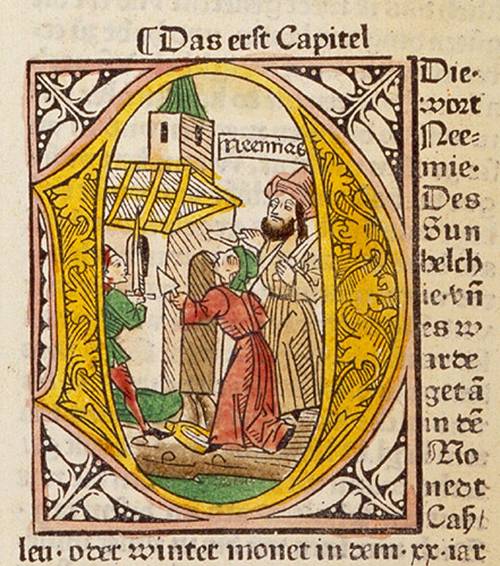 ⸿ Das erst Capitel
Die·
wort
Nee⸗
mie·
Des
Sun
helch
ie·vn̄
es w
arde
getā
in dē
Mo
nedt
Cas/
leu· oder winter monet in dem·xx·iar
Neemias